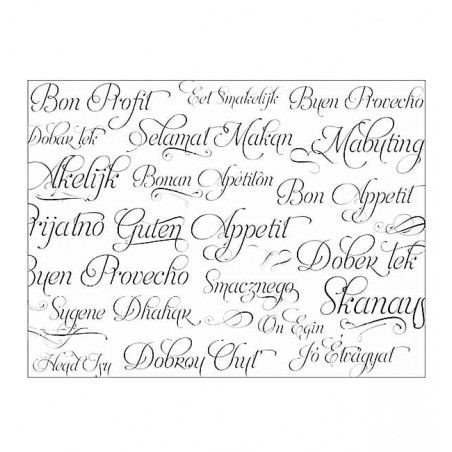 Bon Profit Eet Smakelijk Buen Provecho
Dobar tek Selamat Makan Mabuting
Akelijk Bonan Apétiton Bon Appetit
Prijatno Guten Appetit
Buen Provecho Dober tek
Smacznego Skanaus
Sygene Dhahar On Egin
Head Isu Dobroy Chyt' Jó Étvágyat